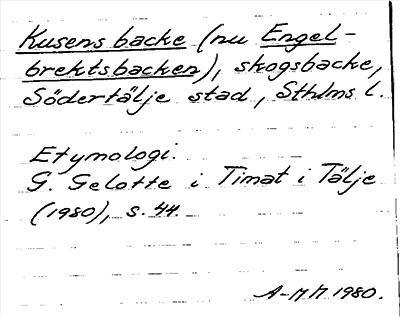 Kusens backe (nu Engel-
brektsbacken), skogsbacke,
Södertälje stad, Sthlms l.
Etymologi.
G. Gelotte i Timat i Tälje
(1980), s. 44.
A-MM 1980.